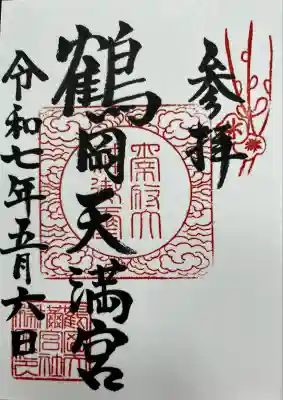 参拝
鶴岡天満宮
令和七年五月六日